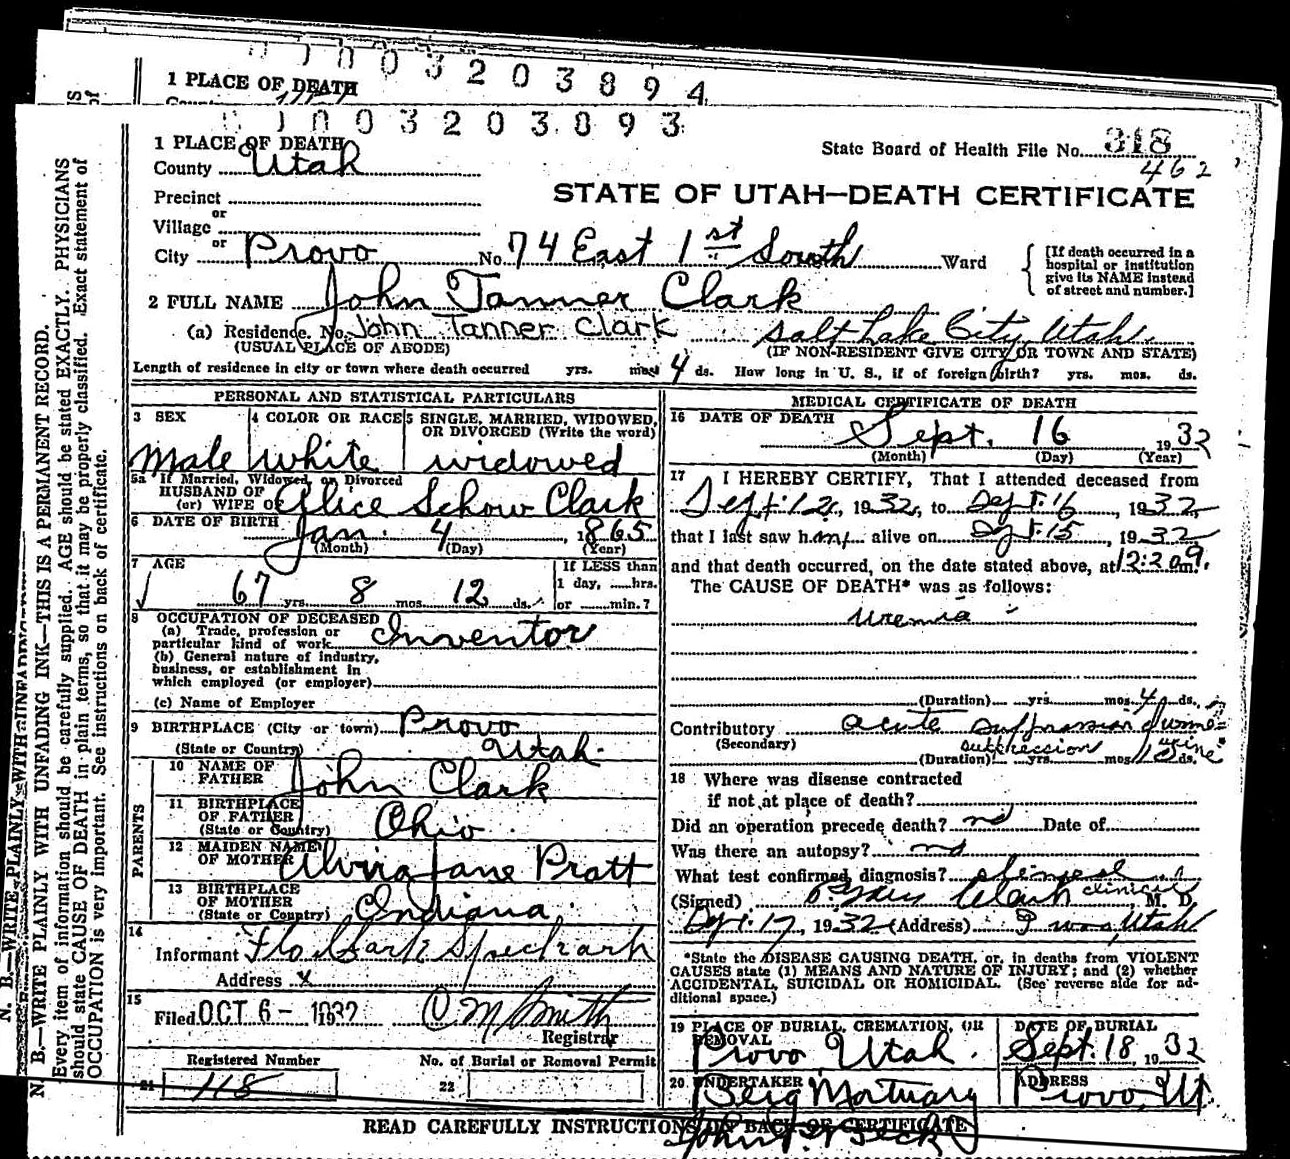 0003203894
1 PLACE OF DEATH
0003203893
1 PLACE OF DEATH
County Utah
State Board of Health File No. 318
462
STATE OF UTAH—DEATH CERTIFICATE
Precinct
or
Village
or
City Provo No. 74 East 1st South Ward
[If death occurred in a
hospital or institution
give its NAME instead
of street and number.]
2 FULL NAME John Tanner Clark
(a) Residence. No. John Tanner Clark Salt Lake City, Utah
(USUAL PLACE OF ABODE) (IF NON-RESIDENT GIVE CITY OR TOWN AND STATE)
Length of residence in city or town where death occurred yrs. mos. 4 ds. How long in U. S., if of foreign birth? yrs. mos. ds.
PERSONAL AND STATISTICAL PARTICULARS
3 SEX
Male
4 COLOR OR RACE
white
5 SINGLE, MARRIED, WIDOWED,
OR DIVORCED (Write the word)
widowed
5a If Married, Widowed, or Divorced
HUSBAND OF
(or) WIFE OF Alice Schow Clark
6 DATE OF BIRTH Jan. 4, 1865
(Month) (Day) (Year)
7 AGE
67 yrs. 8 mos. 12 ds.
If LESS than
1 day, hrs.
or min.?
8 OCCUPATION OF DECEASED
(a) Trade, profession or
particular kind of work Inventor
(b) General nature of industry,
business, or establishment in
which employed (or employer)
(c) Name of Employer
9 BIRTHPLACE (City or town) Provo
(State or Country) Utah.
PARENTS
10 NAME OF
FATHER John Clark
11 BIRTHPLACE
OF FATHER
(State or Country) Ohio
12 MAIDEN NAME
OF MOTHER Alvira Jane Pratt
13 BIRTHPLACE
OF MOTHER
(State or Country) Indiana
14
Informant Flo Clark
Address x
15
Filed OCT 6 - 1932 O M Smith
Registrar
Registered Number
21 118
No. of Burial or Removal Permit
22
MEDICAL CERTIFICATE OF DEATH
16 DATE OF DEATH
Sept. 16 1932
(Month) (Day) (Year)
17 I HEREBY CERTIFY, That I attended deceased from
Sept. 12, 1932, to Sept. 16, 1932,
that I last saw him alive on Sept. 15, 1932
and that death occurred, on the date stated above, at 12:20 m.
The CAUSE OF DEATH* was as follows:
Uremia
(Duration) yrs. mos. 4 ds.
Contributory acute suppression of urine
(Secondary) suppression urine
(Duration) yrs. mos. ds.
18 Where was disease contracted
if not at place of death?
Did an operation precede death? no Date of
Was there an autopsy? no
What test confirmed diagnosis? clinical
clinical
(Signed) Clark, M. D.
Sept. 17, 1932 (Address) Provo, Utah
*State the DISEASE CAUSING DEATH, or, in deaths from VIOLENT
CAUSES state (1) MEANS AND NATURE OF INJURY; and (2) whether
ACCIDENTAL, SUICIDAL OR HOMICIDAL. (See reverse side for ad-
ditional space.)
19 PLACE OF BURIAL, CREMATION, OR
REMOVAL
Provo Utah.
DATE OF BURIAL
Sept. 18, 1932
20. UNDERTAKER
Berg Mortuary
ADDRESS
Provo, Ut
READ CAREFULLY INSTRUCTIONS ON BACK OF CERTIFICATE
N. B.—WRITE PLAINLY WITH UNFADING INK—THIS IS A PERMANENT RECORD.
Every item of information should be carefully supplied. AGE should be stated EXACTLY. PHYSICIANS
should state CAUSE OF DEATH in plain terms, so that it may be properly classified. Exact statement of
OCCUPATION is very important. See instructions on back of certificate.